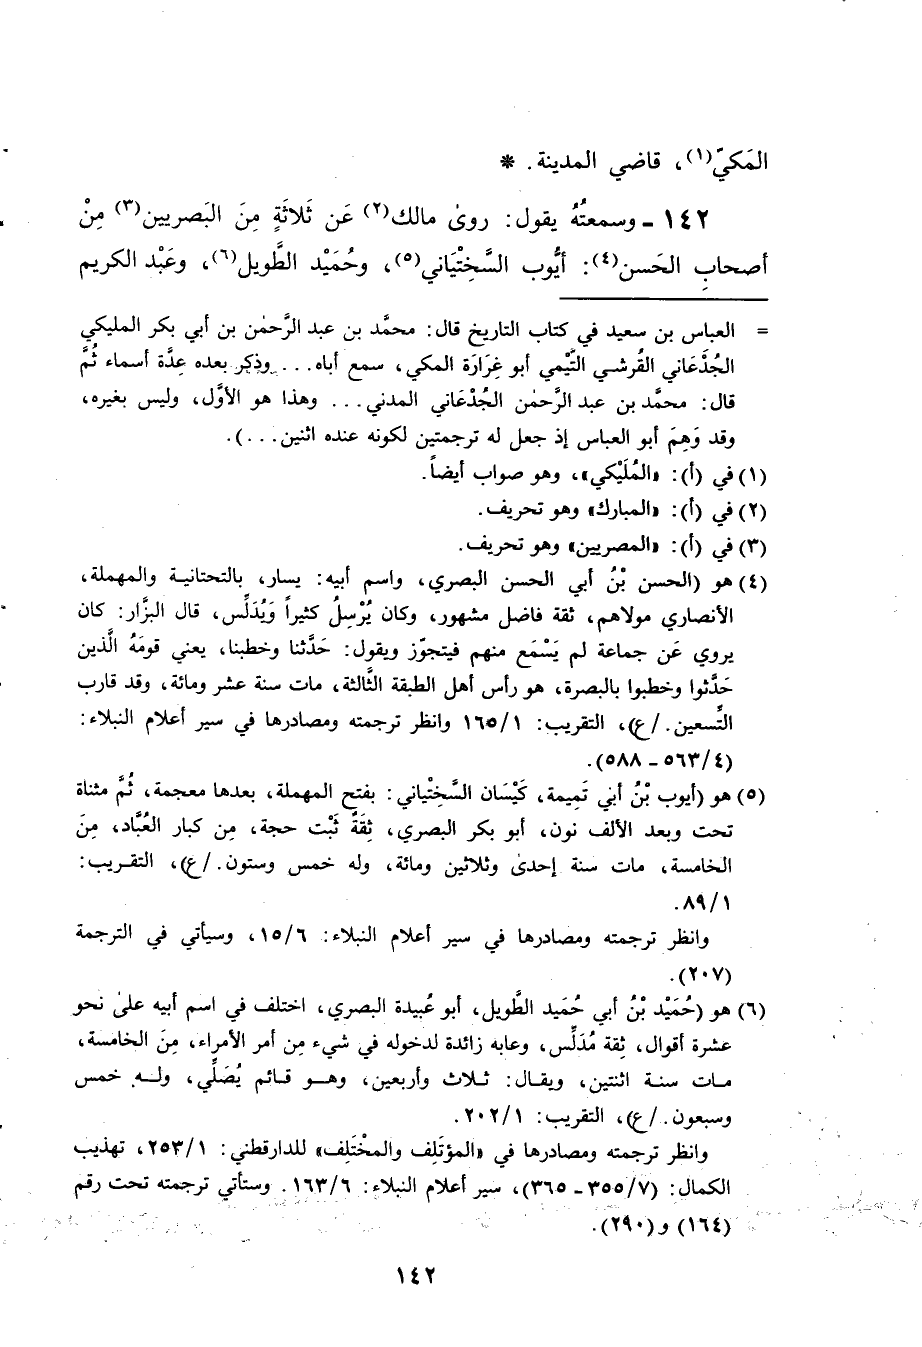 المَكيّ(١)، قاضي المدينة. *
١٤٢ ـ وسمعتُهُ يقول: روىٰ مالك(٢) عَن ثَلاثَةٍ مِنَ البَصريين(٣) مِنْ
أصحابِ الحَسن(٤): أيُّوب السَّخْتِيَاني(٥)، وحُمَيْد الطَّويل(٦)، وعَبْد الكريم
= العباس بن سعيد في كتاب التاريخ قال: محمَّد بن عبد الرَّحمٰن بن أبي بكر المليكي
الجُدْعاني القُرشي التَّيْمي أبو غِرَارَة المكي، سمع أباه... وذِكِر بعده عِدَّة أسماء ثُمَّ
قال: محمَّد بن عبد الرحمٰن الجُدْعاني المدني... وهذا هو الأوَّل، وليس بغيره،
وقد وَهِمَ أبو العباس إذ جعل له ترجمتين لكونه عنده اثنين...).
(١) في (أ): «المُلَيْكي»، وهو صواب أيضاً.
(٢) في (أ): «المبارك» وهو تحريف.
(٣) في (أ): «المصريين» وهو تحريف.
(٤) هو (الحسن بْنُ أبي الحسن البصري، واسم أبيه: يسار، بالتحتانية والمهملة،
الأنصاري مولاهم، ثقة فاضل مشهور، وكان يُرْسِلُ كثيراً وَيُدَلِّس، قال البزَّار: كان
يروي عَن جماعة لم يَسْمَع منهم فيتجوّز ويقول: حَدَّثنا وخطبنا، يعني قومَهُ الَّذين
حَدَّثوا وخطبوا بالبصرة، هو رأس أهل الطبقة الثَّالثة، مات سنة عشر ومائة، وقد قارب
التِّسعين./ع)، التقريب: ١/١٦٥ وانظر ترجمته ومصادرها في سير أعلام النبلاء:
(٤/٥٦٣ ـ ٥٨٨).
(٥) هو (أيوب بْنُ أبي تَمِيمة، كَيْسَان السَّخْتِياني: بفتح المهملة، بعدها معجمة، ثُمَّ مثناة
تحت وبعد الألف نون، أبو بكر البصري، ثِقَةٌ ثَبْت حجة، مِن كبار العُبَّاد، مِنَ
الخامسة، مات سنة إحدىٰ وثلاثين ومائة، وله خمس وستون./ع)، التقريب:
١/٨٩.
وانظر ترجمته ومصادرها في سير أعلام النبلاء: ٦/١٥، وسيأتي في الترجمة
(٢٠٧).
(٦) هو (حُمَيْد بْنُ أبي حُمَيد الطَّويل، أبو عُبيدة البصري، اختلف في اسم أبيه علىٰ نحو
عشرة أقوال، ثِقة مُدَلِّس، وعابه زائدة لدخوله في شيء مِن أمر الأمراء، مِنَ الخامسة،
مات سنة اثنتين، ويقال: ثلاث وأربعين، وهو قائم يُصَلِّي، وله خمس
وسبعون./ع)، التقريب: ١/٢٠٢.
وانظر ترجمته ومصادرها في «المؤتَلِف والمخْتَلِف» للدارقطني: ١/٢٥٣، تهذيب
الكمال: (٧/٣٥٥ ـ ٣٦٥)، سير أعلام النبلاء: ٦/١٦٣. وستأتي ترجمته تحت رقم
(١٦٤) و(٢٩٠).
١٤٢